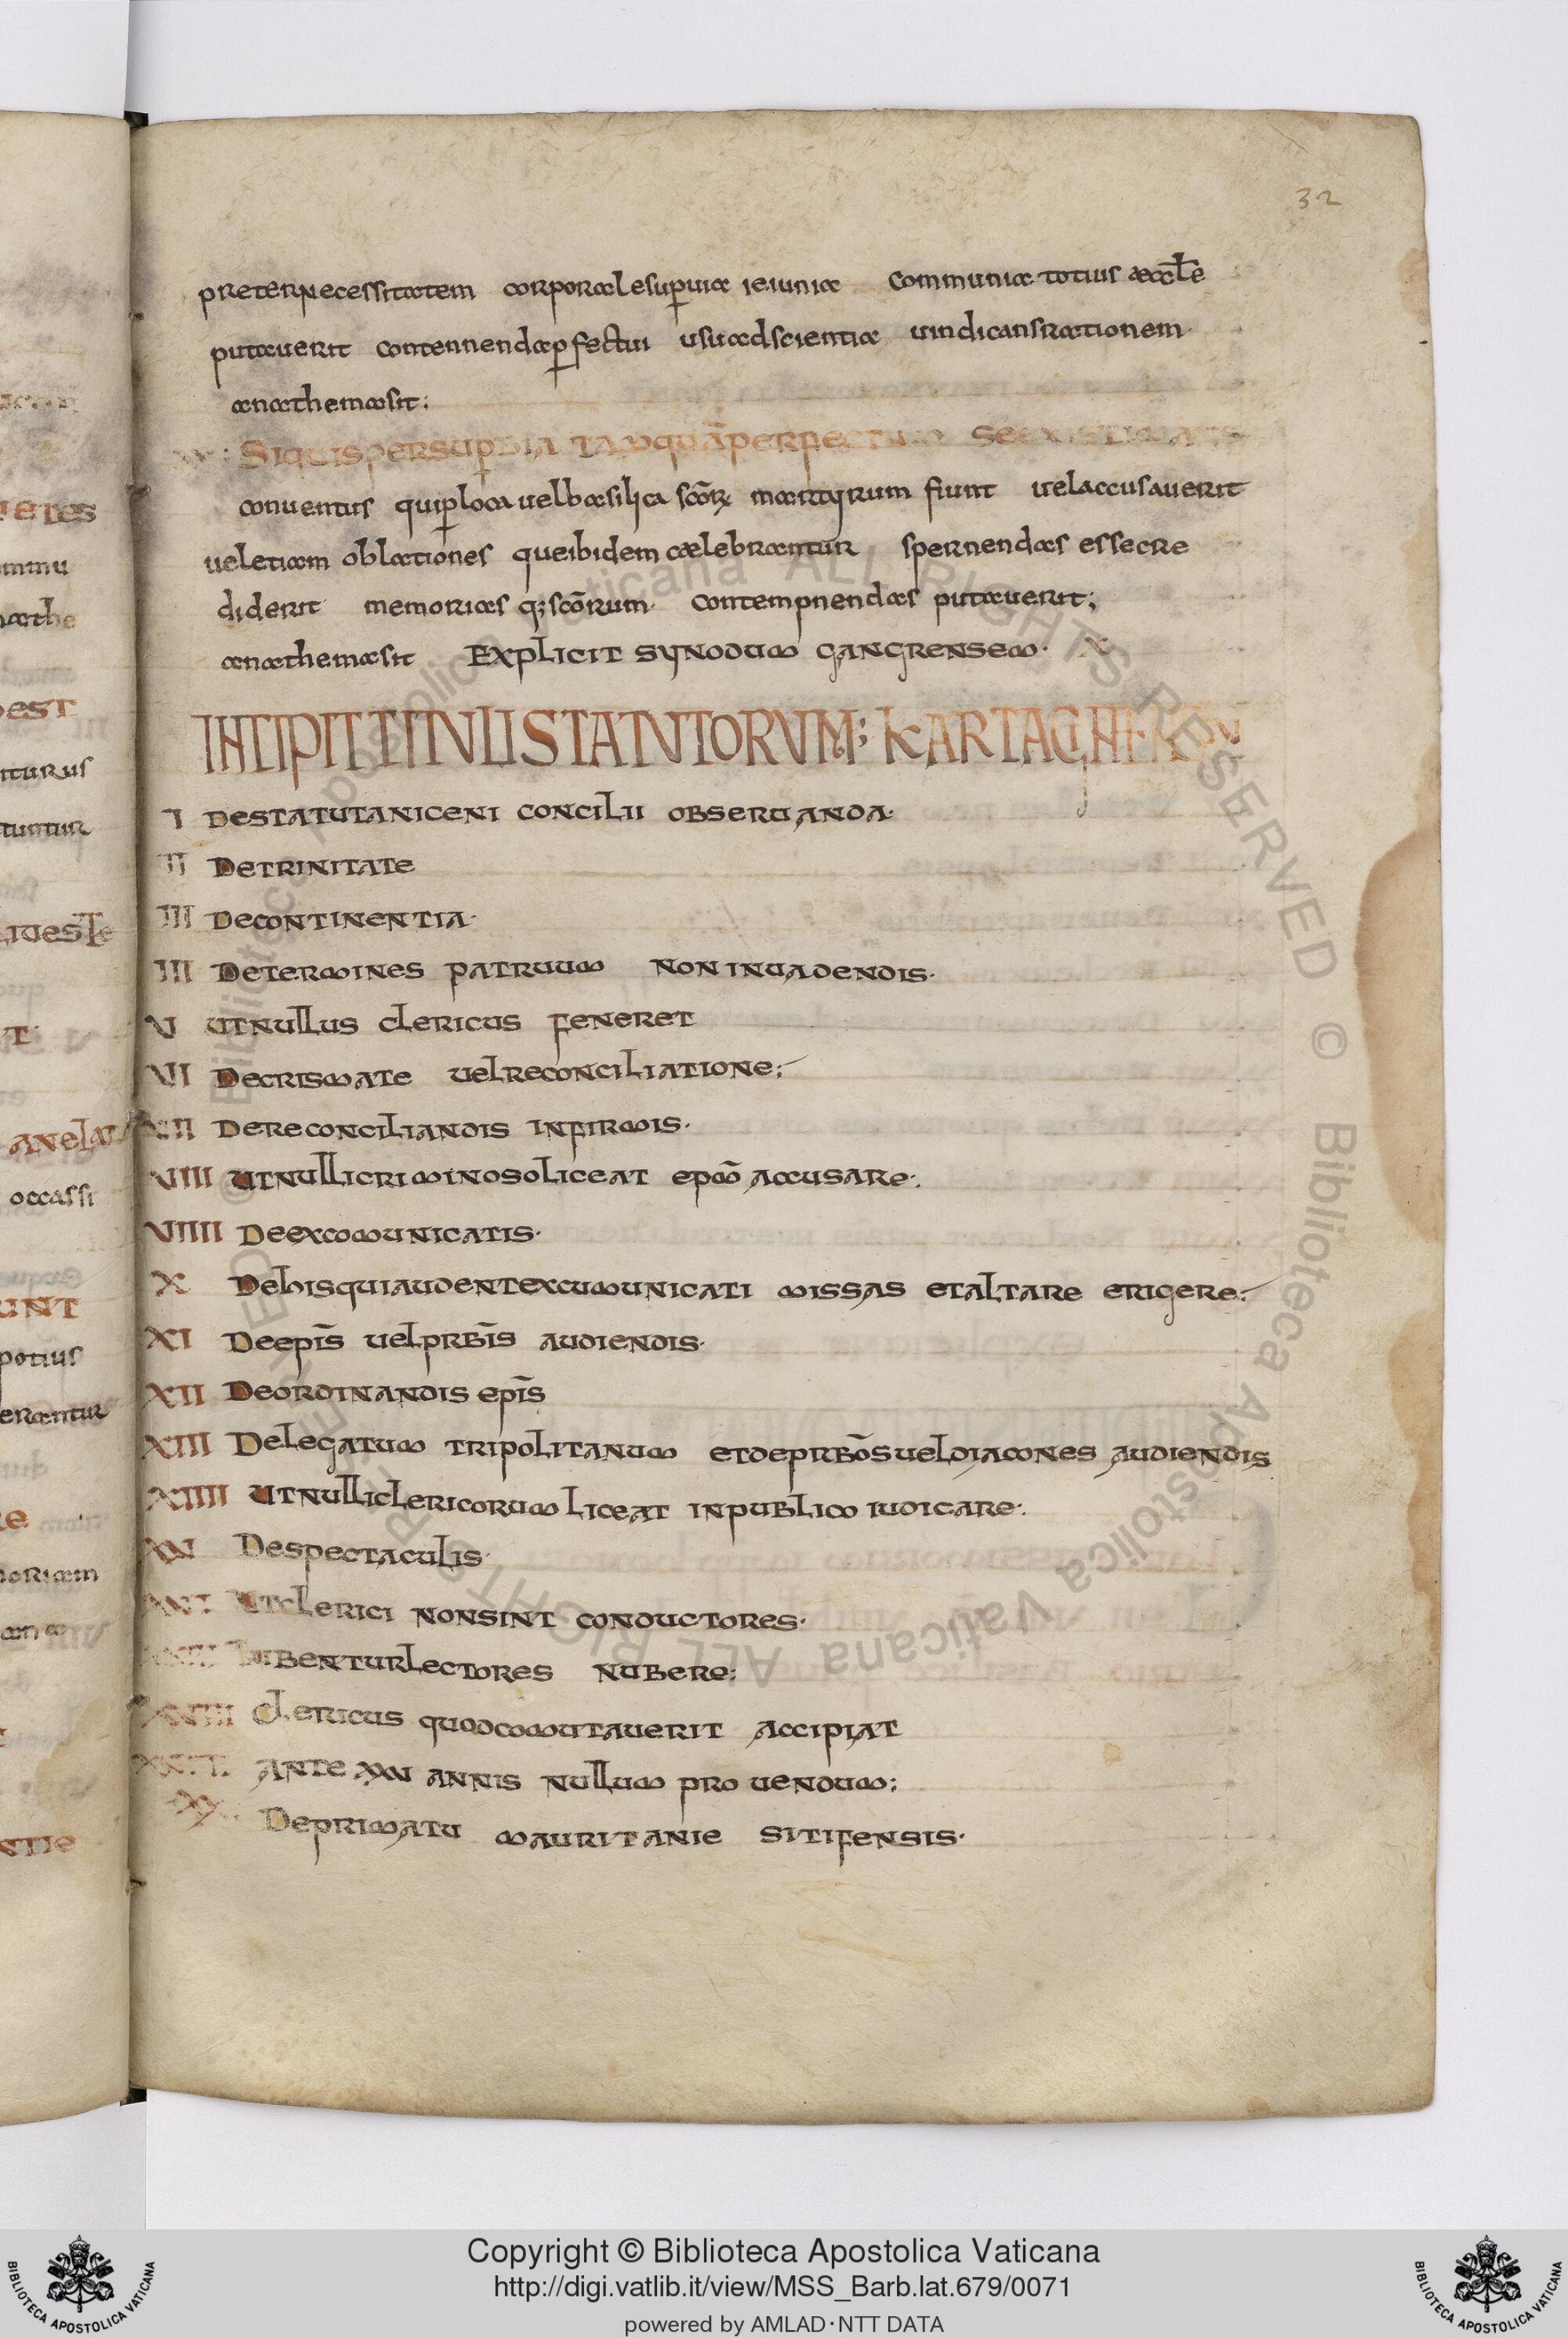 32
preternecessitatem corporalesupuia ieiunia communia totius aeccle
putauerit contennendapfectui usuadscientia uindicansrationem·
anathemasit;
Siquispersupbia tamquāperfectum seexistimans
conuentus quiploca uelbasilica scōr martyrum fiunt uelaccusauerit
ueletiam oblationes queibidem caelebrantur spernendas essecre
diderit memorias q;scōrum· contempnendas putauerit;
anathemasit Explicit synodum gangrensem· X
INCIPIT TITULI STATUTORUM; KARTAGHEN
I Destatutaniceni concilii obseruanda·
II Detrinitate
III Decontinentia·
IIII Determines patruum noninuadendis·
V utnullus clericus feneret
VI Decrismate uelreconciliatione;
VII Dereconciliandis infirmis·
VIII Utnullicriminosoliceat epm̄ accusare;
VIIII Deexcomunicatis·
X Dehisquiaudentexcumunicati missas etaltare erigere;
XI Deepīs uelprbīs audiendis·
XII Deordinandis epīs
XIII Delegatum tripolitanum etdeprbōsueldiacones audiendis
XIIII Utnulliclericorum liceat inpublico iudicare;
XV Despectaculis·
XVI Utclerici nonsint conductores·
XVII Iubenturlectores nubere;
XVIII Clericus quodcomutauerit accipiat
XVIIII Ante XXV annis nullum pro uendum;
XX Deprimatu mauritanie sitifensis·
Copyright © Biblioteca Apostolica Vaticana
http://digi.vatlib.it/view/MSS_Barb.lat.679/0071
powered by AMLAD·NTT DATA
BIBLIOTECA APOSTOLICA VATICANA
BIBLIOTECA APOSTOLICA VATICANA